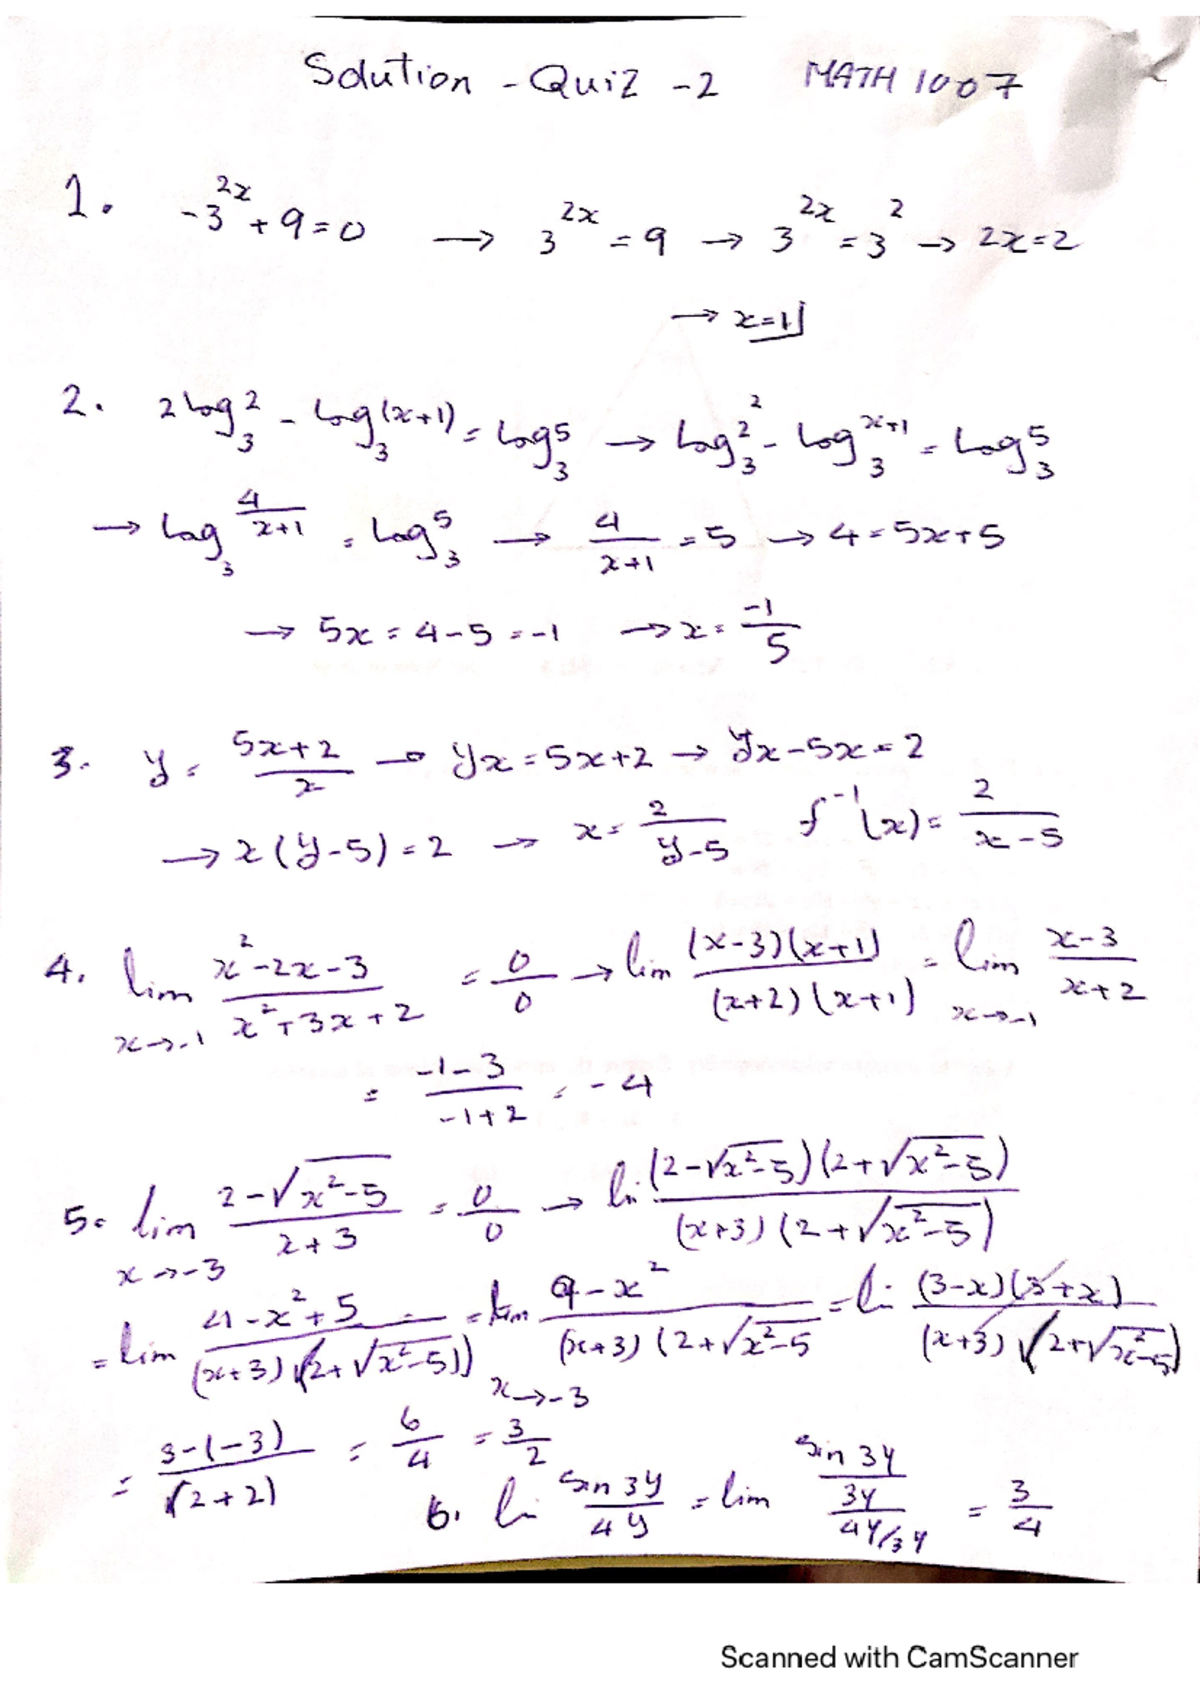 Solution - Quiz - 2 MATH 1007
1. -3^{2x} + 9 = 0 → 3^{2x} = 9 → 3^{2x} = 3^2 → 2x = 2
→ x = 1
2. 2 log_3 2 - log_3 (x+1) = log_3 5 → log_3 2^2 - log_3 x+1 = log_3 5
→ log_3 4/(x+1) = log_3 5 → 4/(x+1) = 5 → 4 = 5x + 5
→ 5x = 4 - 5 = -1 → x = -1/5
3. y = (5x+2)/x → yx = 5x + 2 → yx - 5x = 2
→ x(y-5) = 2 → x = 2/(y-5) f^{-1}(x) = 2/(x-5)
4. lim_{x→-1} (x^2-2x-3)/(x^2+3x+2) = 0/0 → lim (x-3)(x+1)/(x+2)(x+1) = lim_{x→-1} (x-3)/(x+2)
= (-1-3)/(-1+2) = -4
5. lim_{x→-3} (2-√(x^2-5))/(x+3) = 0/0 → li (2-√(x^2-5))(2+√(x^2-5))/(x+3)(2+√(x^2-5))
= lim (4-x^2+5)/(x+3)(2+√(x^2-5)) = lim_{x→-3} (9-x^2)/(x+3)(2+√(x^2-5) = li (3-x)(3+x)/(x+3)(2+√(x^2-5))
= (3-(-3))/(2+2) = 6/4 = 3/2
6. li sin 3y/4y = lim (sin 3y/3y)/(4y/3y) = 3/4
Scanned with CamScanner